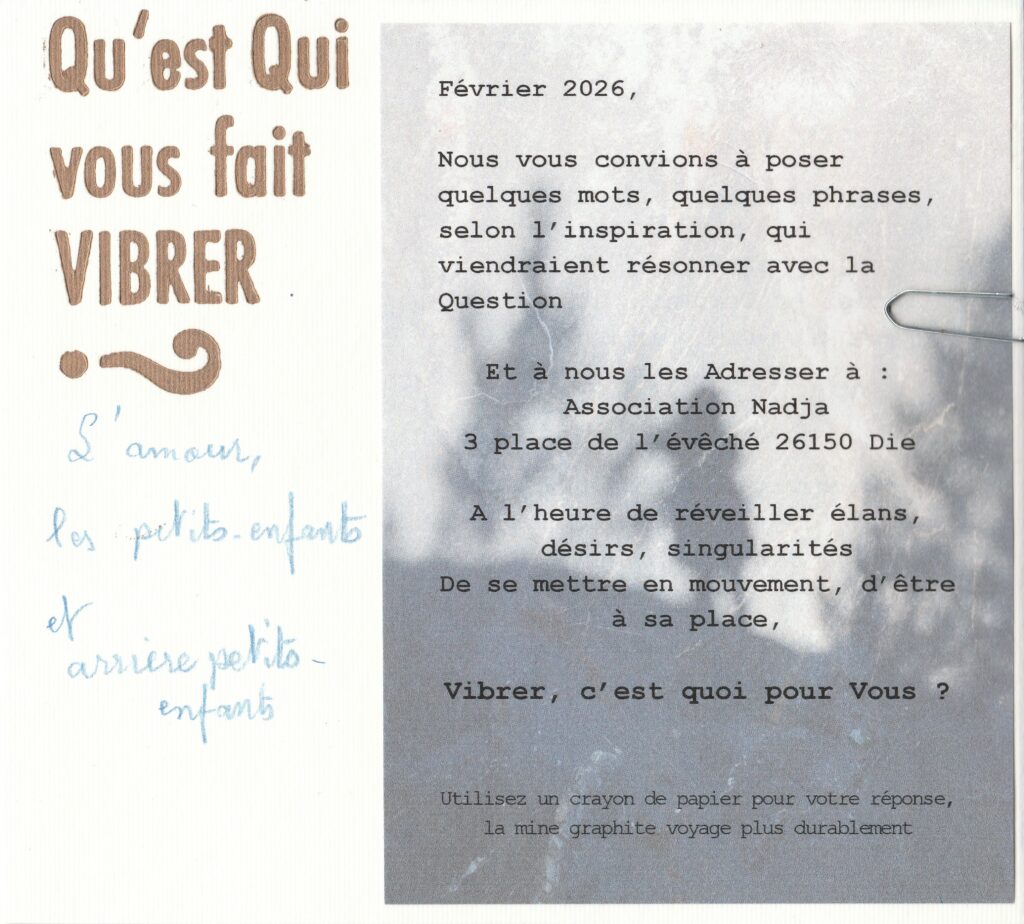 Qu'est Qui
vous fait
VIBRER
?
L'amour,
les petits-enfants
et
arrière petits-
enfants
Février 2026,
Nous vous convions à poser
quelques mots, quelques phrases,
selon l'inspiration, qui
viendraient résonner avec la
Question
Et à nous les Adresser à :
Association Nadja
3 place de l'évêché 26150 Die
A l'heure de réveiller élans,
désirs, singularités
De se mettre en mouvement, d'être
à sa place,
Vibrer, c'est quoi pour Vous ?
Utilisez un crayon de papier pour votre réponse,
la mine graphite voyage plus durablement